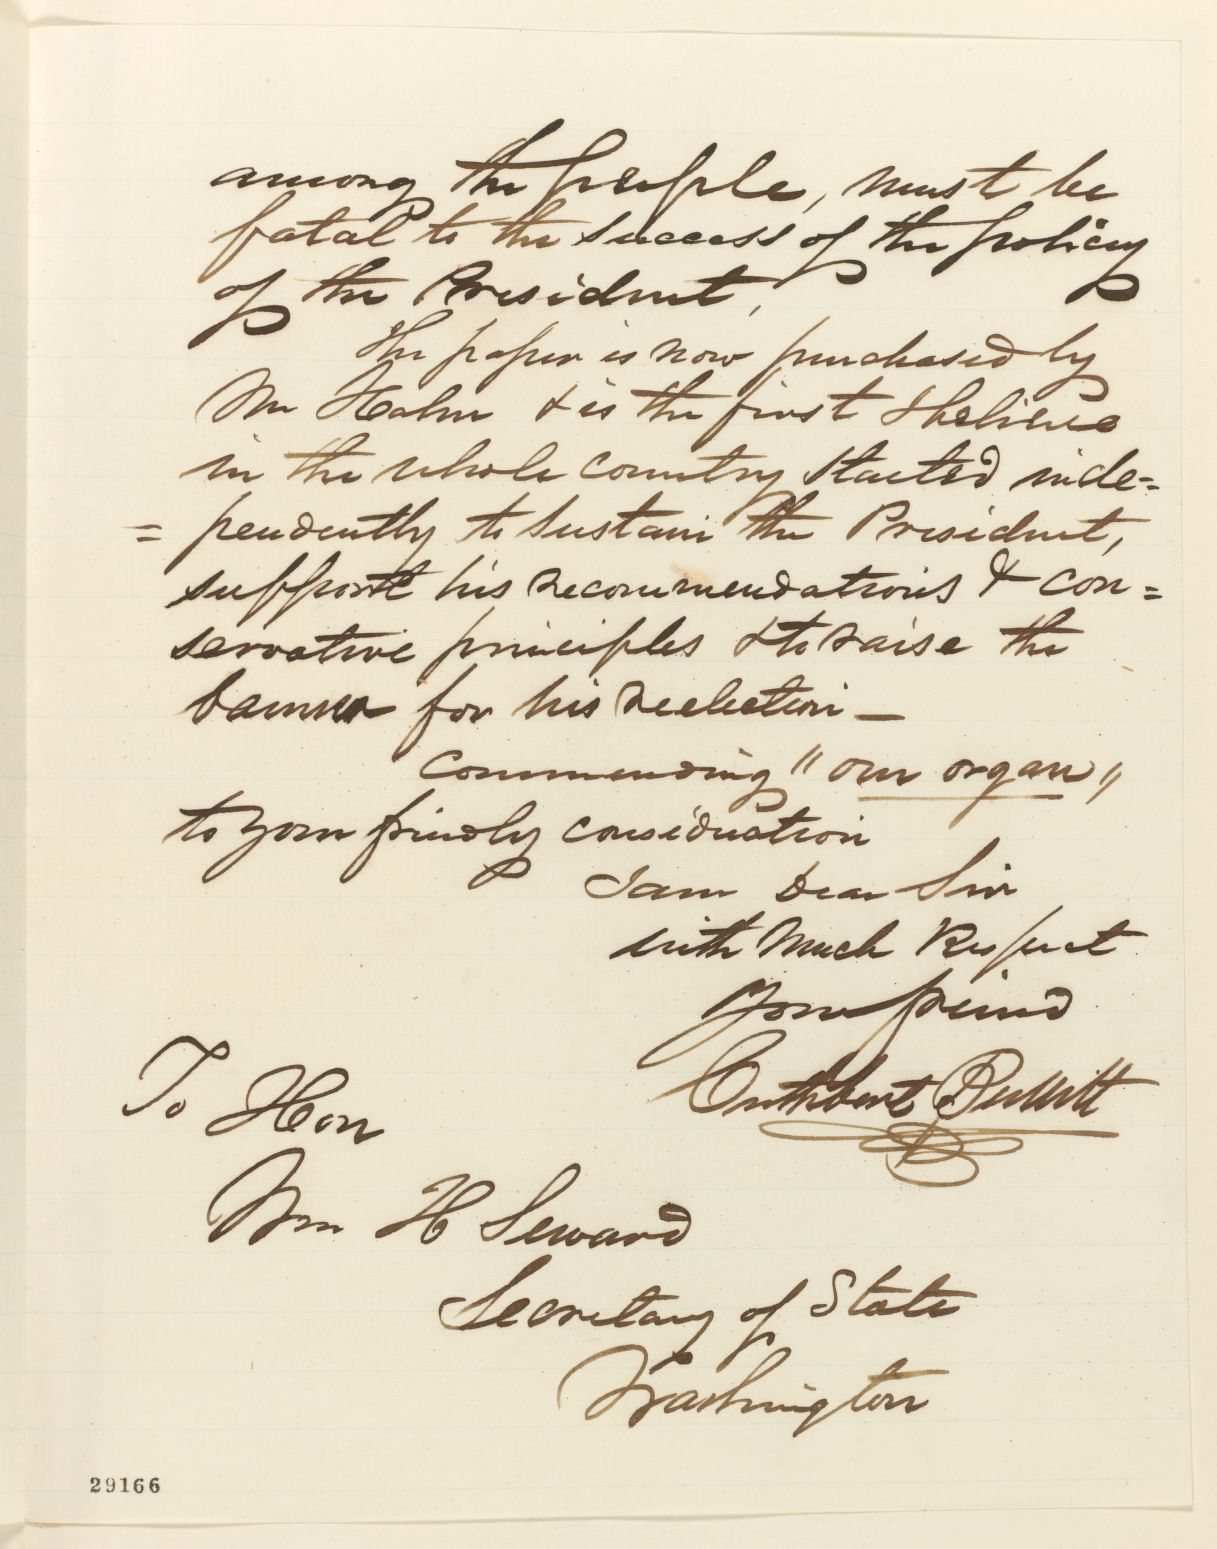 among the people, must be
fatal to the success of the policy
of the President,
The paper is now purchased by
Mr Hahn & is the first I believe
in the whole country started inde-
= pendently to sustain the President,
support his recommendations & con=
servative principles & to raise the
banner for his reelection —
Commending "our organ"
to your friendly consideration
I am Dear Sir
with Much Respect
Your friend
Cuthbert Bullitt
To Hon
Wm H Seward
Secretary of State
Washington
29166